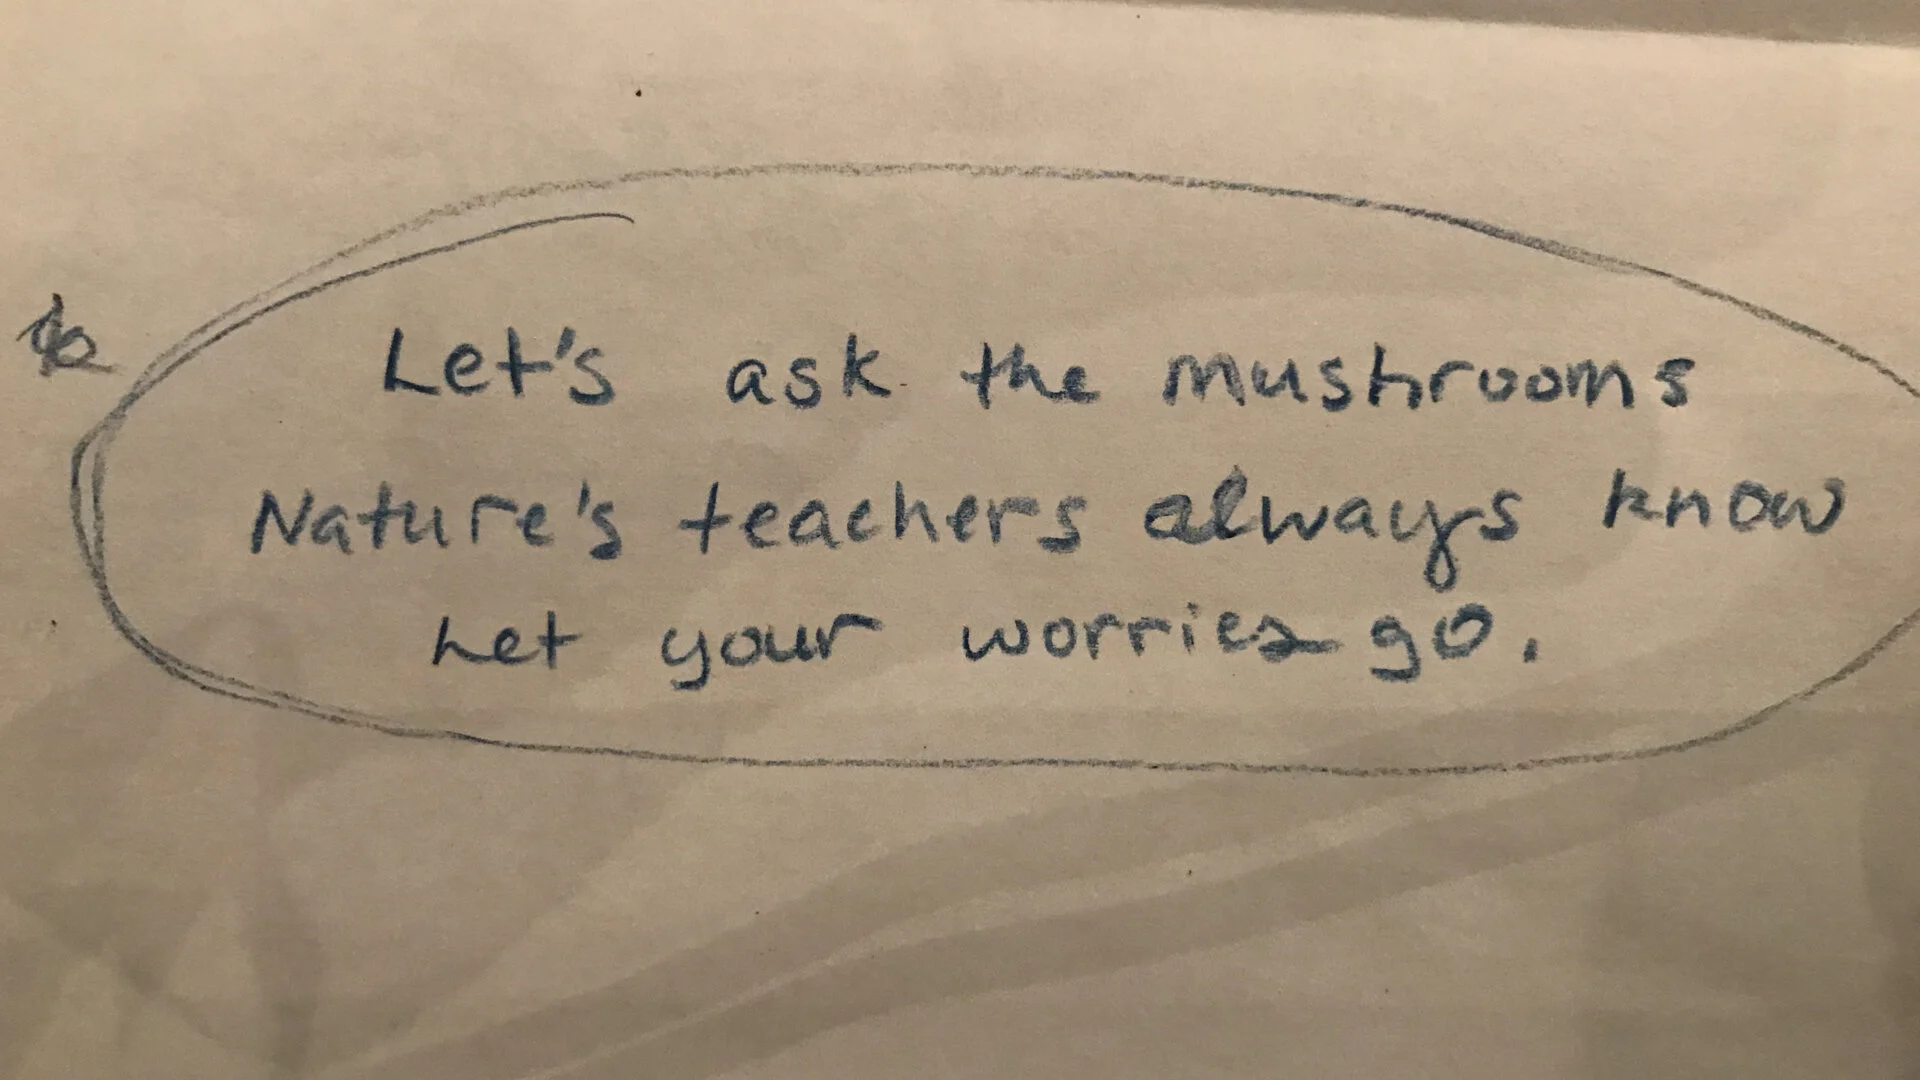 Let's ask the mushrooms
Nature's teachers always know
Let your worries go.